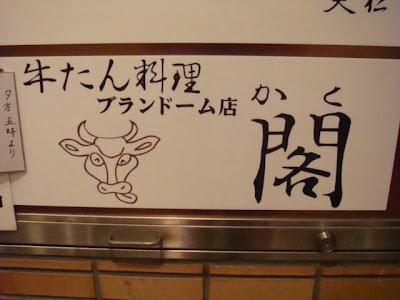 牛たん料理
ブランドーム店
かく
閣
夕方五時より